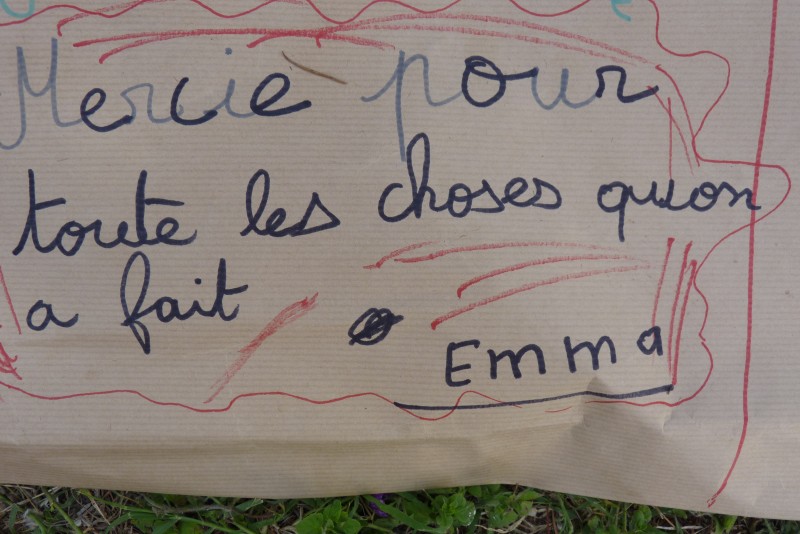 Mercie pour
toute les choses quon
a fait
Emma